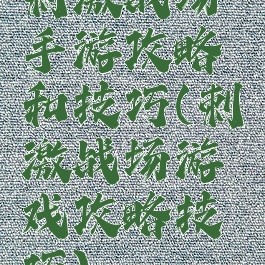 刺激战场
手游攻略
和技巧(刺
激战场游
戏攻略技
巧)